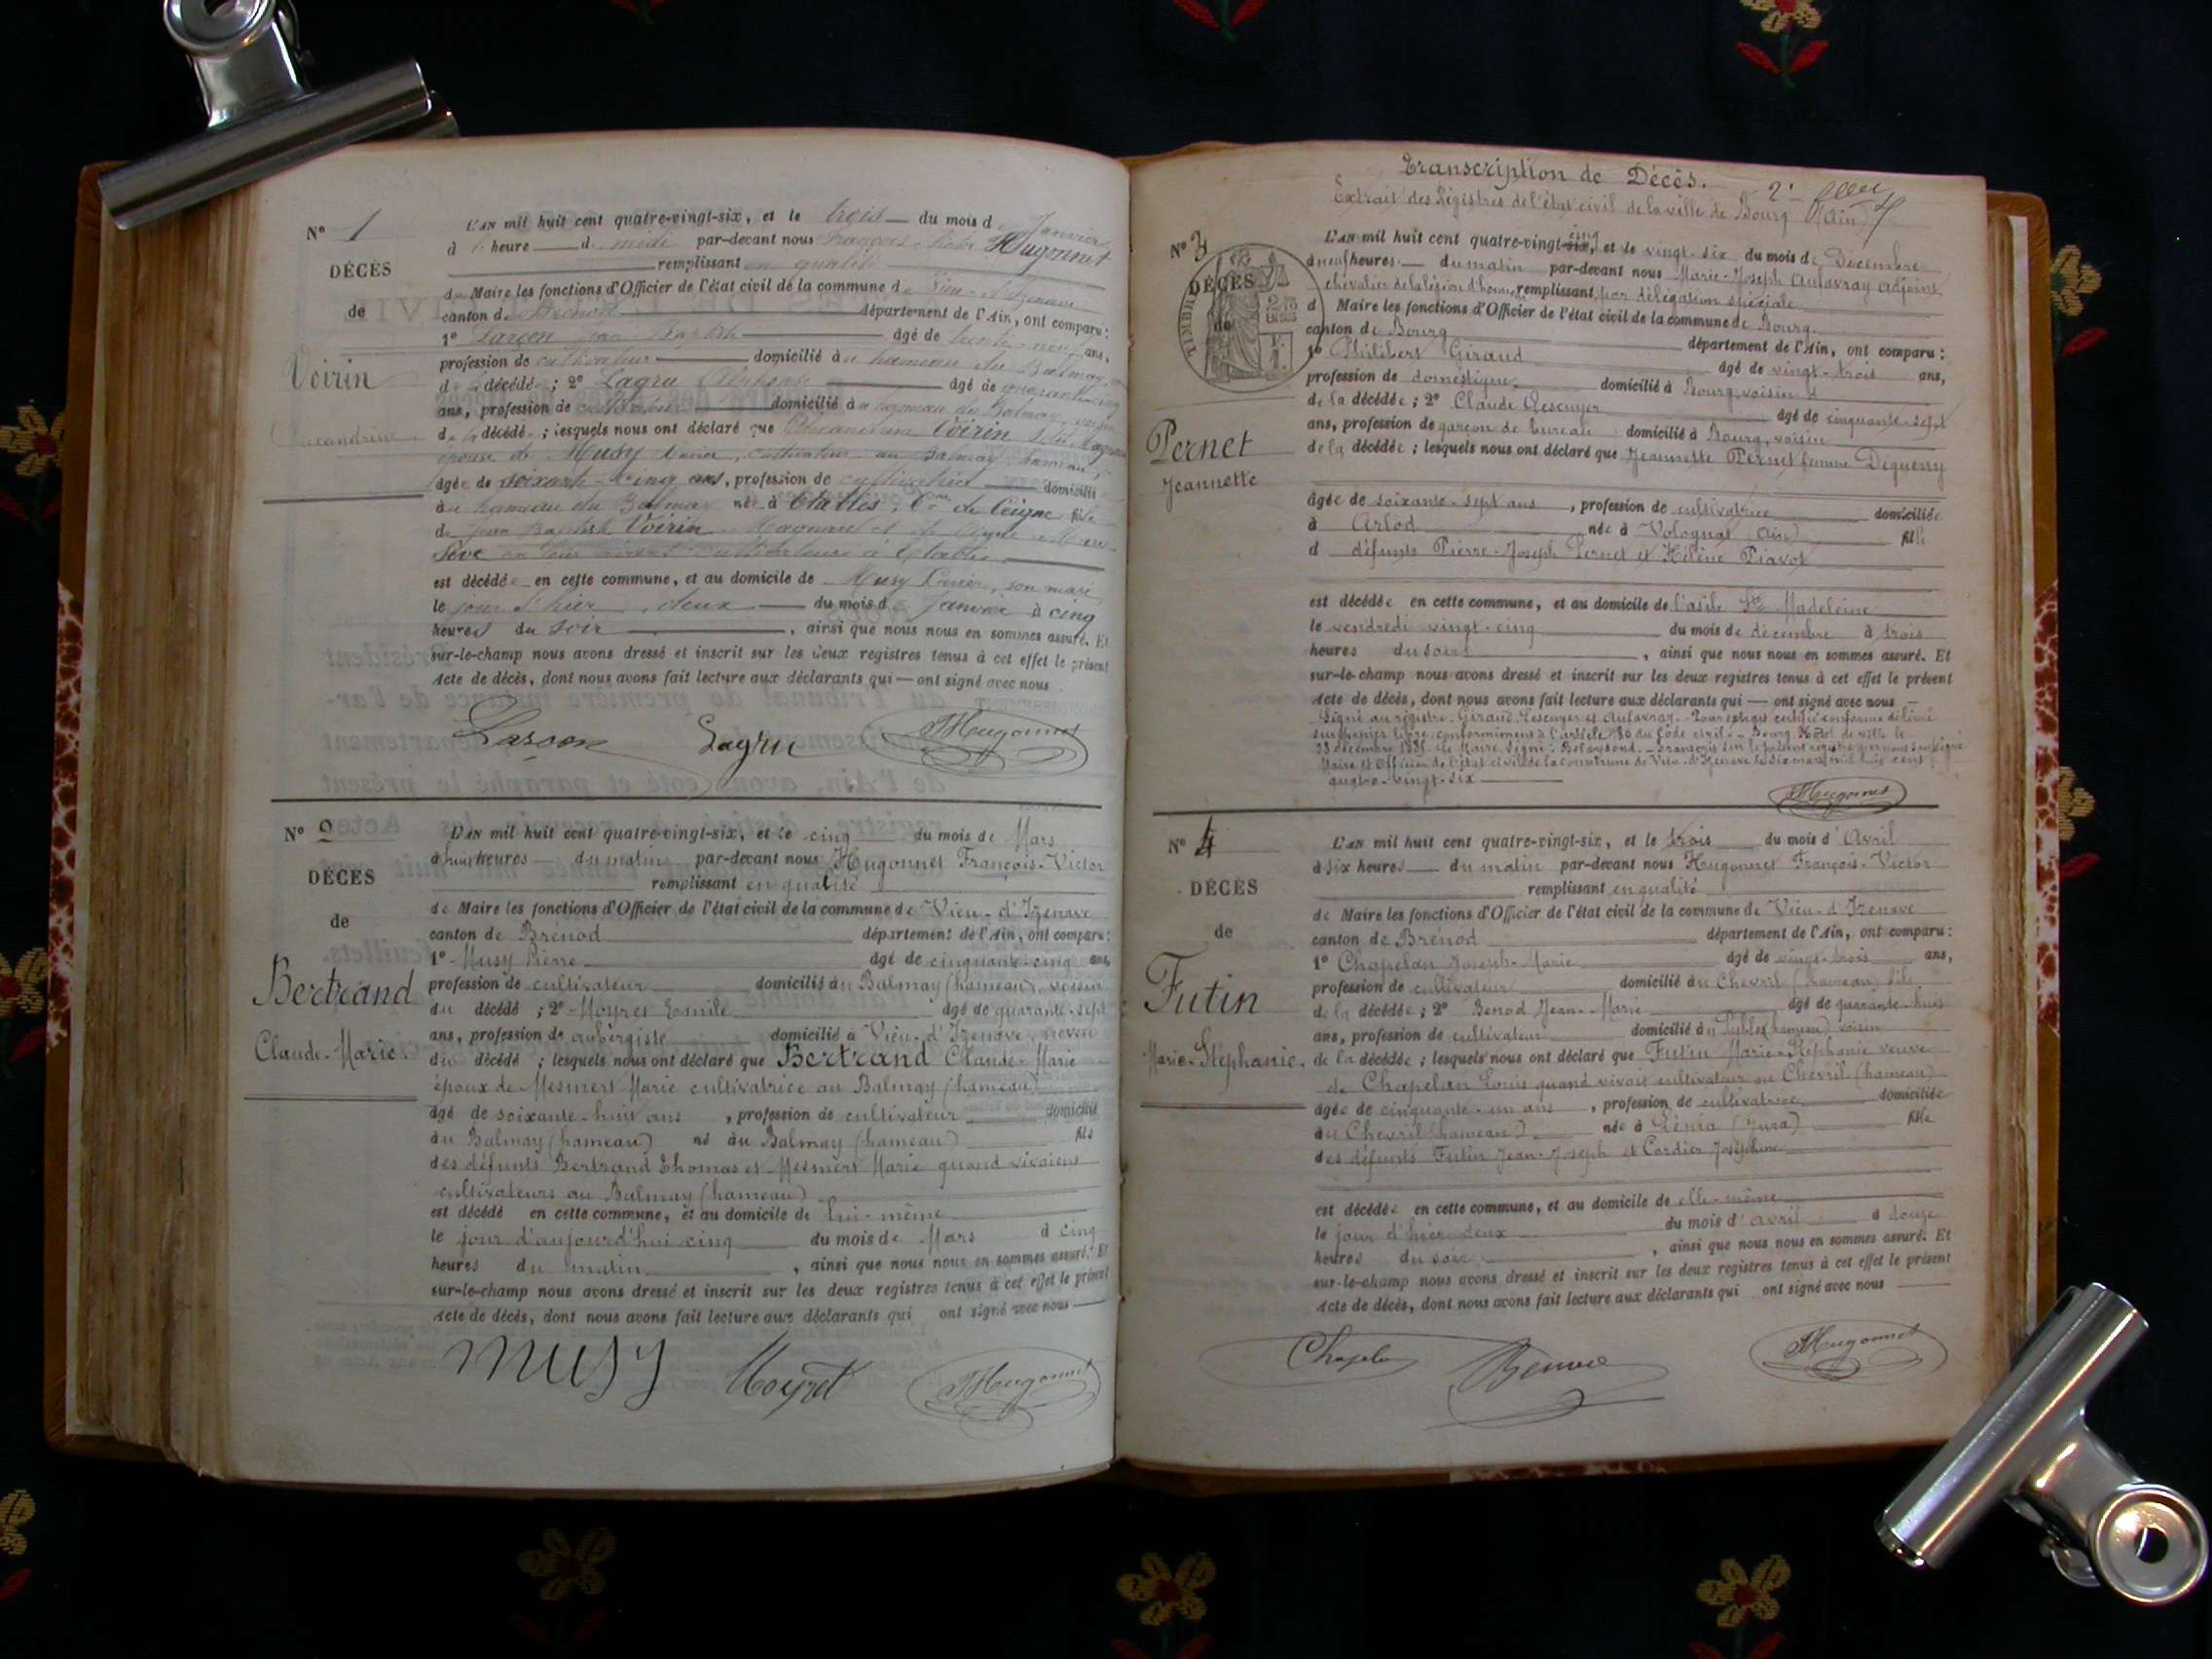 N° 1
DÉCÈS
de
Voirin
L'AN mil huit cent quatre-vingt-six, et le trois du mois de Janvier
à heure d midi par-devant nous François Hugonnet
remplissant en qualité
de Maire les fonctions d'Officier de l'état civil de la commune de Vieu-d'Izenave
canton de Brénod département de l'Ain, ont comparu :
1° Jean Baptiste âgé de trente-neuf ans,
profession de cultivateur domicilié au hameau du Balmay
d décédé ; 2° Lagru âgé de quarante
ans, profession de cultivateur domicilié au hameau du Balmay
de la décédée ; lesquels nous ont déclaré que Voirin
épouse de Musy cultivateur au Balmay hameau,
âgée de soixante-cinq ans, profession de cultivatrice domiciliée
au hameau du Balmay née à Étables, Cne de Ceigne fille
de Jean Baptiste Voirin
cultivateurs à Étables
est décédée en cette commune, et au domicile de Musy son mari,
le jour d'hier deux du mois de Janvier à cinq
heures du soir , ainsi que nous nous en sommes assuré. Et
sur-le-champ nous avons dressé et inscrit sur les deux registres tenus à cet effet le présent
Acte de décès, dont nous avons fait lecture aux déclarants qui — ont signé avec nous
Lagru Hugonnet
N° 2
DÉCÈS
de
Bertrand
Claude-Marie.
L'AN mil huit cent quatre-vingt-six, et le cinq du mois de Mars
à huit heures du matin par-devant nous Hugonnet François-Victor
remplissant en qualité
de Maire les fonctions d'Officier de l'état civil de la commune de Vieu-d'Izenave
canton de Brénod département de l'Ain, ont comparu :
1° Musy Pierre âgé de cinquante-cinq ans,
profession de cultivateur domicilié au Balmay (hameau), voisin
du décédé ; 2° Moyret Emile âgé de quarante-sept
ans, profession de aubergiste domicilié à Vieu-d'Izenave, neveu
du décédé ; lesquels nous ont déclaré que Bertrand Claude-Marie
époux de Mesmert Marie cultivatrice au Balmay (hameau)
âgé de soixante-huit ans , profession de cultivateur domicilié
au Balmay (hameau) né au Balmay (hameau) fils
des défunts Bertrand Thomas et Mesmert Marie quand vivaient
cultivateurs au Balmay (hameau)
est décédé en cette commune, et au domicile de lui-même
le jour d'aujourd'hui cinq du mois de Mars à cinq
heures du matin , ainsi que nous nous en sommes assuré. Et
sur-le-champ nous avons dressé et inscrit sur les deux registres tenus à cet effet le présent
Acte de décès, dont nous avons fait lecture aux déclarants qui ont signé avec nous
Musy Moyret Hugonnet
Transcription de Décès.
Extrait des Régistres de l'état civil de la ville de Bourg (Ain)
N° 3
DÉCÈS
de
TIMBRE
Pernet
Jeannette
L'AN mil huit cent quatre-vingt-six, cinq et le vingt-six du mois de Décembre
à neuf heures du matin par-devant nous Marie-Joseph Aulavray adjoint
chevalier de la légion d'honneur remplissant par délégation spéciale
d Maire les fonctions d'Officier de l'état civil de la commune de Bourg
canton de Bourg département de l'Ain, ont comparu :
1° Philibert Giraud âgé de vingt-trois ans,
profession de domestique domicilié à Bourg, voisin
de la décédée ; 2° Claude Lescuyer âgé de cinquante-sept
ans, profession de garçon de bureau domicilié à Bourg, voisin
de la décédée ; lesquels nous ont déclaré que Jeannette Pernet femme Déguerry
âgée de soixante-sept ans , profession de cultivatrice domiciliée
à Arlod née à Volognat (Ain) fille
d défunts Pierre-Joseph Pernet et Hélène Piavot
est décédée en cette commune, et au domicile de l'asile Ste Madeleine
le vendredi vingt-cinq du mois de décembre à trois
heures du soir , ainsi que nous nous en sommes assuré. Et
sur-le-champ nous avons dressé et inscrit sur les deux registres tenus à cet effet le présent
Acte de décès, dont nous avons fait lecture aux déclarants qui — ont signé avec nous
Signé au registre : Giraud, Lescuyer et Aulavray. Pour extrait certifié conforme délivré
sur papier libre, conformément à l'article 80 du Code civil. Bourg Hôtel de ville le
28 décembre 1885. Le Maire, signé : Transcrit sur le présent registre par nous soussigné
Maire et Officier de l'état civil de la commune de Vieu-d'Izenave le six mars mil huit cent
quatre-vingt-six
Hugonnet
N° 4
DÉCÈS
de
Futin
Marie-Stéphanie.
L'AN mil huit cent quatre-vingt-six, et le trois du mois d'Avril
à six heures du matin par-devant nous Hugonnet François-Victor
remplissant en qualité
de Maire les fonctions d'Officier de l'état civil de la commune de Vieu-d'Izenave
canton de Brénod département de l'Ain, ont comparu :
1° Chapelan Joseph-Marie âgé de vingt-trois ans,
profession de cultivateur domicilié au Chevril (hameau) fils
de la décédée ; 2° Benod Jean-Marie âgé de quarante-huit
ans, profession de cultivateur domicilié à (hameau) voisin
de la décédée ; lesquels nous ont déclaré que Futin Marie-Stéphanie veuve
de Chapelan Louis quand vivait cultivateur au Chevril (hameau)
âgée de cinquante-un ans , profession de cultivatrice domiciliée
au Chevril (hameau) née à Génia (Jura) fille
des défunts Futin Jean-Joseph et Cordier Joséphine
est décédée en cette commune, et au domicile de elle-même
le jour d'hier deux du mois d'avril à douze
heures du soir , ainsi que nous nous en sommes assuré. Et
sur-le-champ nous avons dressé et inscrit sur les deux registres tenus à cet effet le présent
Acte de décès, dont nous avons fait lecture aux déclarants qui ont signé avec nous
Hugonnet